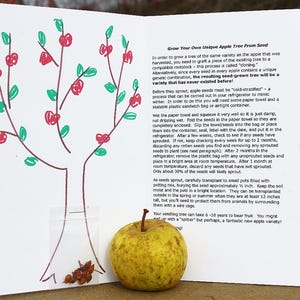 Grow Your Own Unique Apple Tree From Seed
In order to grow a tree of the same variety as the apple that was
harvested, you need to graft a piece of the existing tree to a
compatible rootstock - this process is called "cloning."
Alternatively, since every seed in every apple contains a unique
genetic combination, the resulting seed-grown tree will be a
variety that has never existed before!
Before they sprout, apple seeds must be "cold-stratified" - a
process that can be carried out in your refrigerator to mimic
winter. In order to do this you will need some paper towel and a
sealable plastic sandwich bag or airtight container.
Wet the paper towel and squeeze it very well so it is just damp,
not dripping wet. Fold the seeds in the paper towel so they are
completely enclosed. Slip the towel/seeds into the bag or place
them into the container, seal, label with the date, and put it in the
refrigerator. After a few weeks, check to see if any seeds have
sprouted. If not, keep checking every week for up to 2 months,
discarding any rotten seeds you find and removing any sprouted
seeds to plant (see next paragraph). After 2 months in the
refrigerator, remove the plastic bag with any unsprouted seeds and
place in a bright area at room temperature. After 1 month at
room temperature, discard any seeds that have not sprouted.
Only about 30% of the seeds will likely sprout.
As seeds sprout, carefully transplant to small pots filled with
potting mix, burying the seed approximately ½ inch. Keep the soil
moist and the pots in a bright location. They can be transplanted
outside in the spring or summer when they are at least 12 inches
tall, but you'll need to protect them from animals by surrounding
them with a wire cage.
Your seedling tree can take 6 -10 years to bear fruit. You might
end up with a "spitter" but perhaps, a fantastic new apple variety!